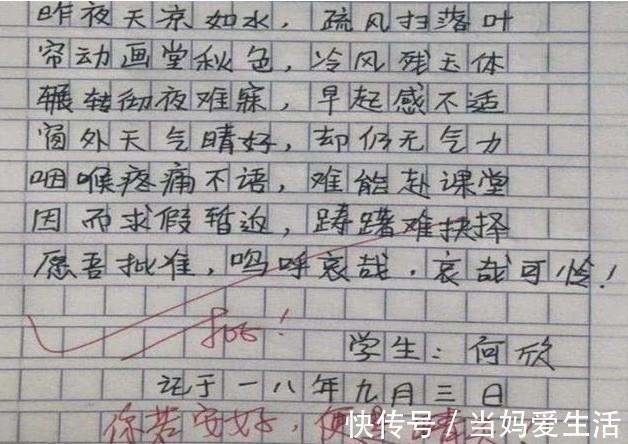 昨夜天凉如水，疏风扫落叶
帘动画堂秋色，冷风残玉体
辗转彻夜难寐，早起感不适
窗外天气晴好，却仍无气力
咽喉疼痛不语，难能赴课堂
因而求假暂迫，踌躇难抉择
愿吾批准，呜呼哀哉．哀哉可怜！
批！
学生：何欣
记于一八年九月三日
你若安好，便
快传号 / 当妈爱生活